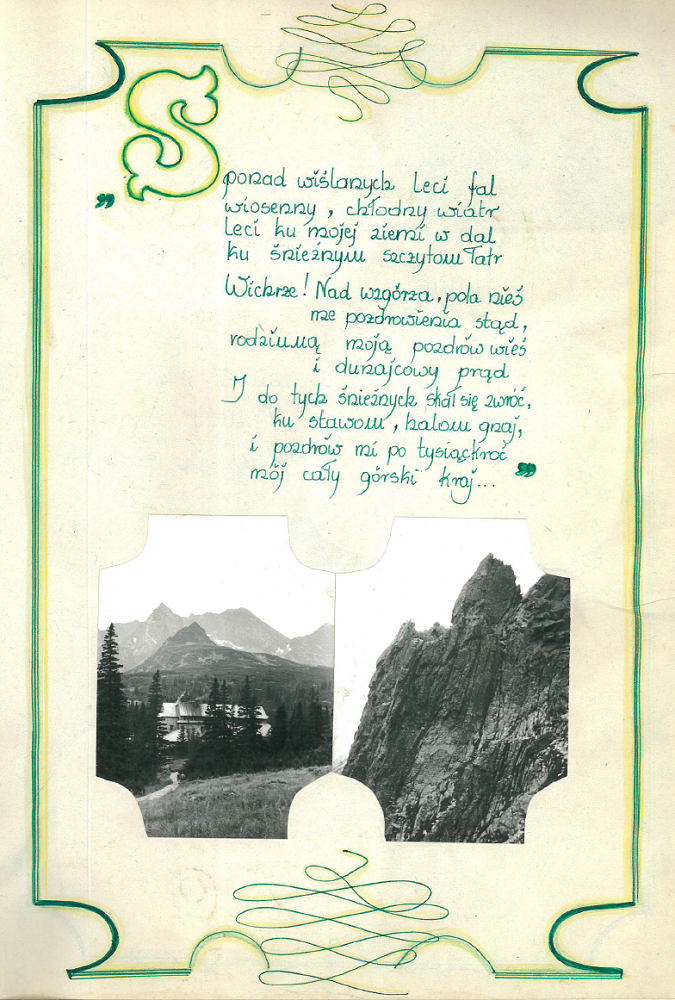 „Sponad wiślanych leci fal
wiosenny, chłodny wiatr
leci ku mojej ziemi w dal
ku śnieżnym szczytom Tatr
Wichrze! Nad wzgórza, pola nieś
me pozdrowienia stąd,
rodzimą moją pozdrów wieś
i dunajcowy prąd
I do tych śnieżnych skał się zwróć,
ku stawom, halom gnaj,
i pozdrów mi po tysiąckroć
mój cały górski kraj...”